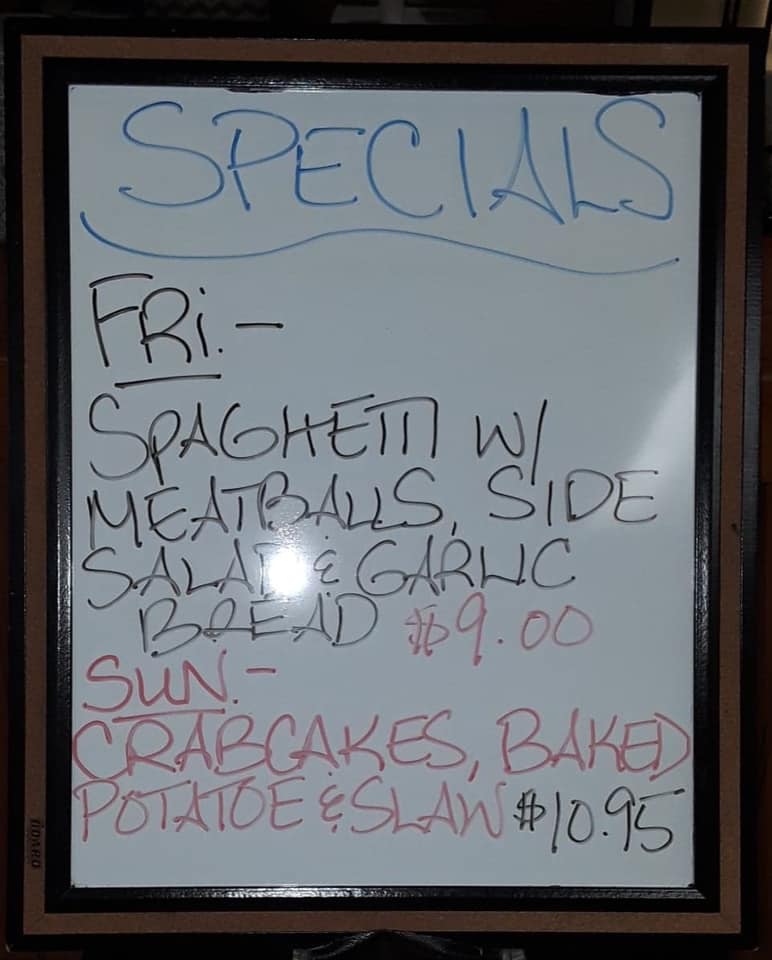 SPECIALS
FRi.-
SPAGHETTI W/
MEATBALLS, SIDE
SALAD & GARLIC
BREAD $9.00
SUN.-
CRABCAKES, BAKED
POTATOE & SLAW $10.95